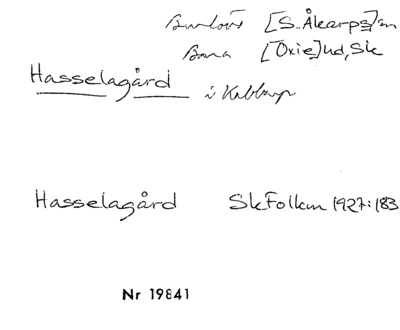 Burlövs [S. Åkarps]sn
Bara [Oxie]hd, Sk
Hasselagård i Kabbarp
Hasselagård SkFolkm 1927:183
Nr 19841